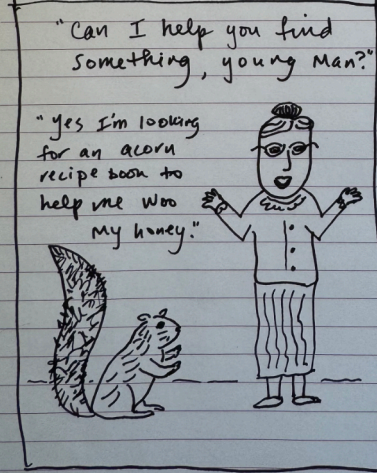 "Can I help you find
something, young man?"
"Yes I'm looking
for an acorn
recipe book to
help me woo
my honey."